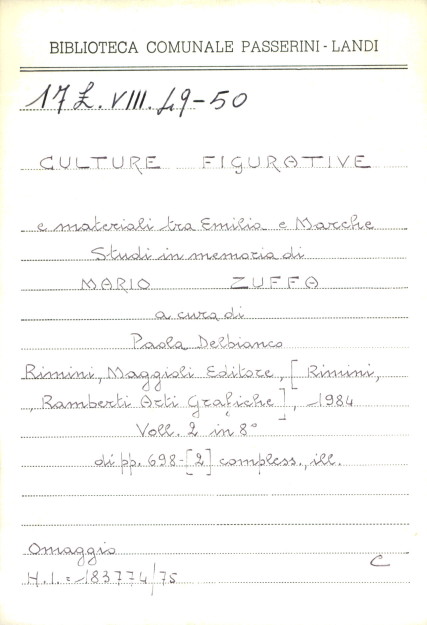 BIBLIOTECA COMUNALE PASSERINI - LANDI
17 L. VIII. 49-50
CULTURE FIGURATIVE
e materiali tra Emilia e Marche
Studi in memoria di
MARIO ZUFFA
a cura di
Paola Delbianco
Rimini, Maggioli Editore, [Rimini,
, Ramberti Arti Grafiche], 1984
Voll. 2 in 8°
di pp. 698-[2] compless., ill.
Omaggio
C
H.I. = 183774/75